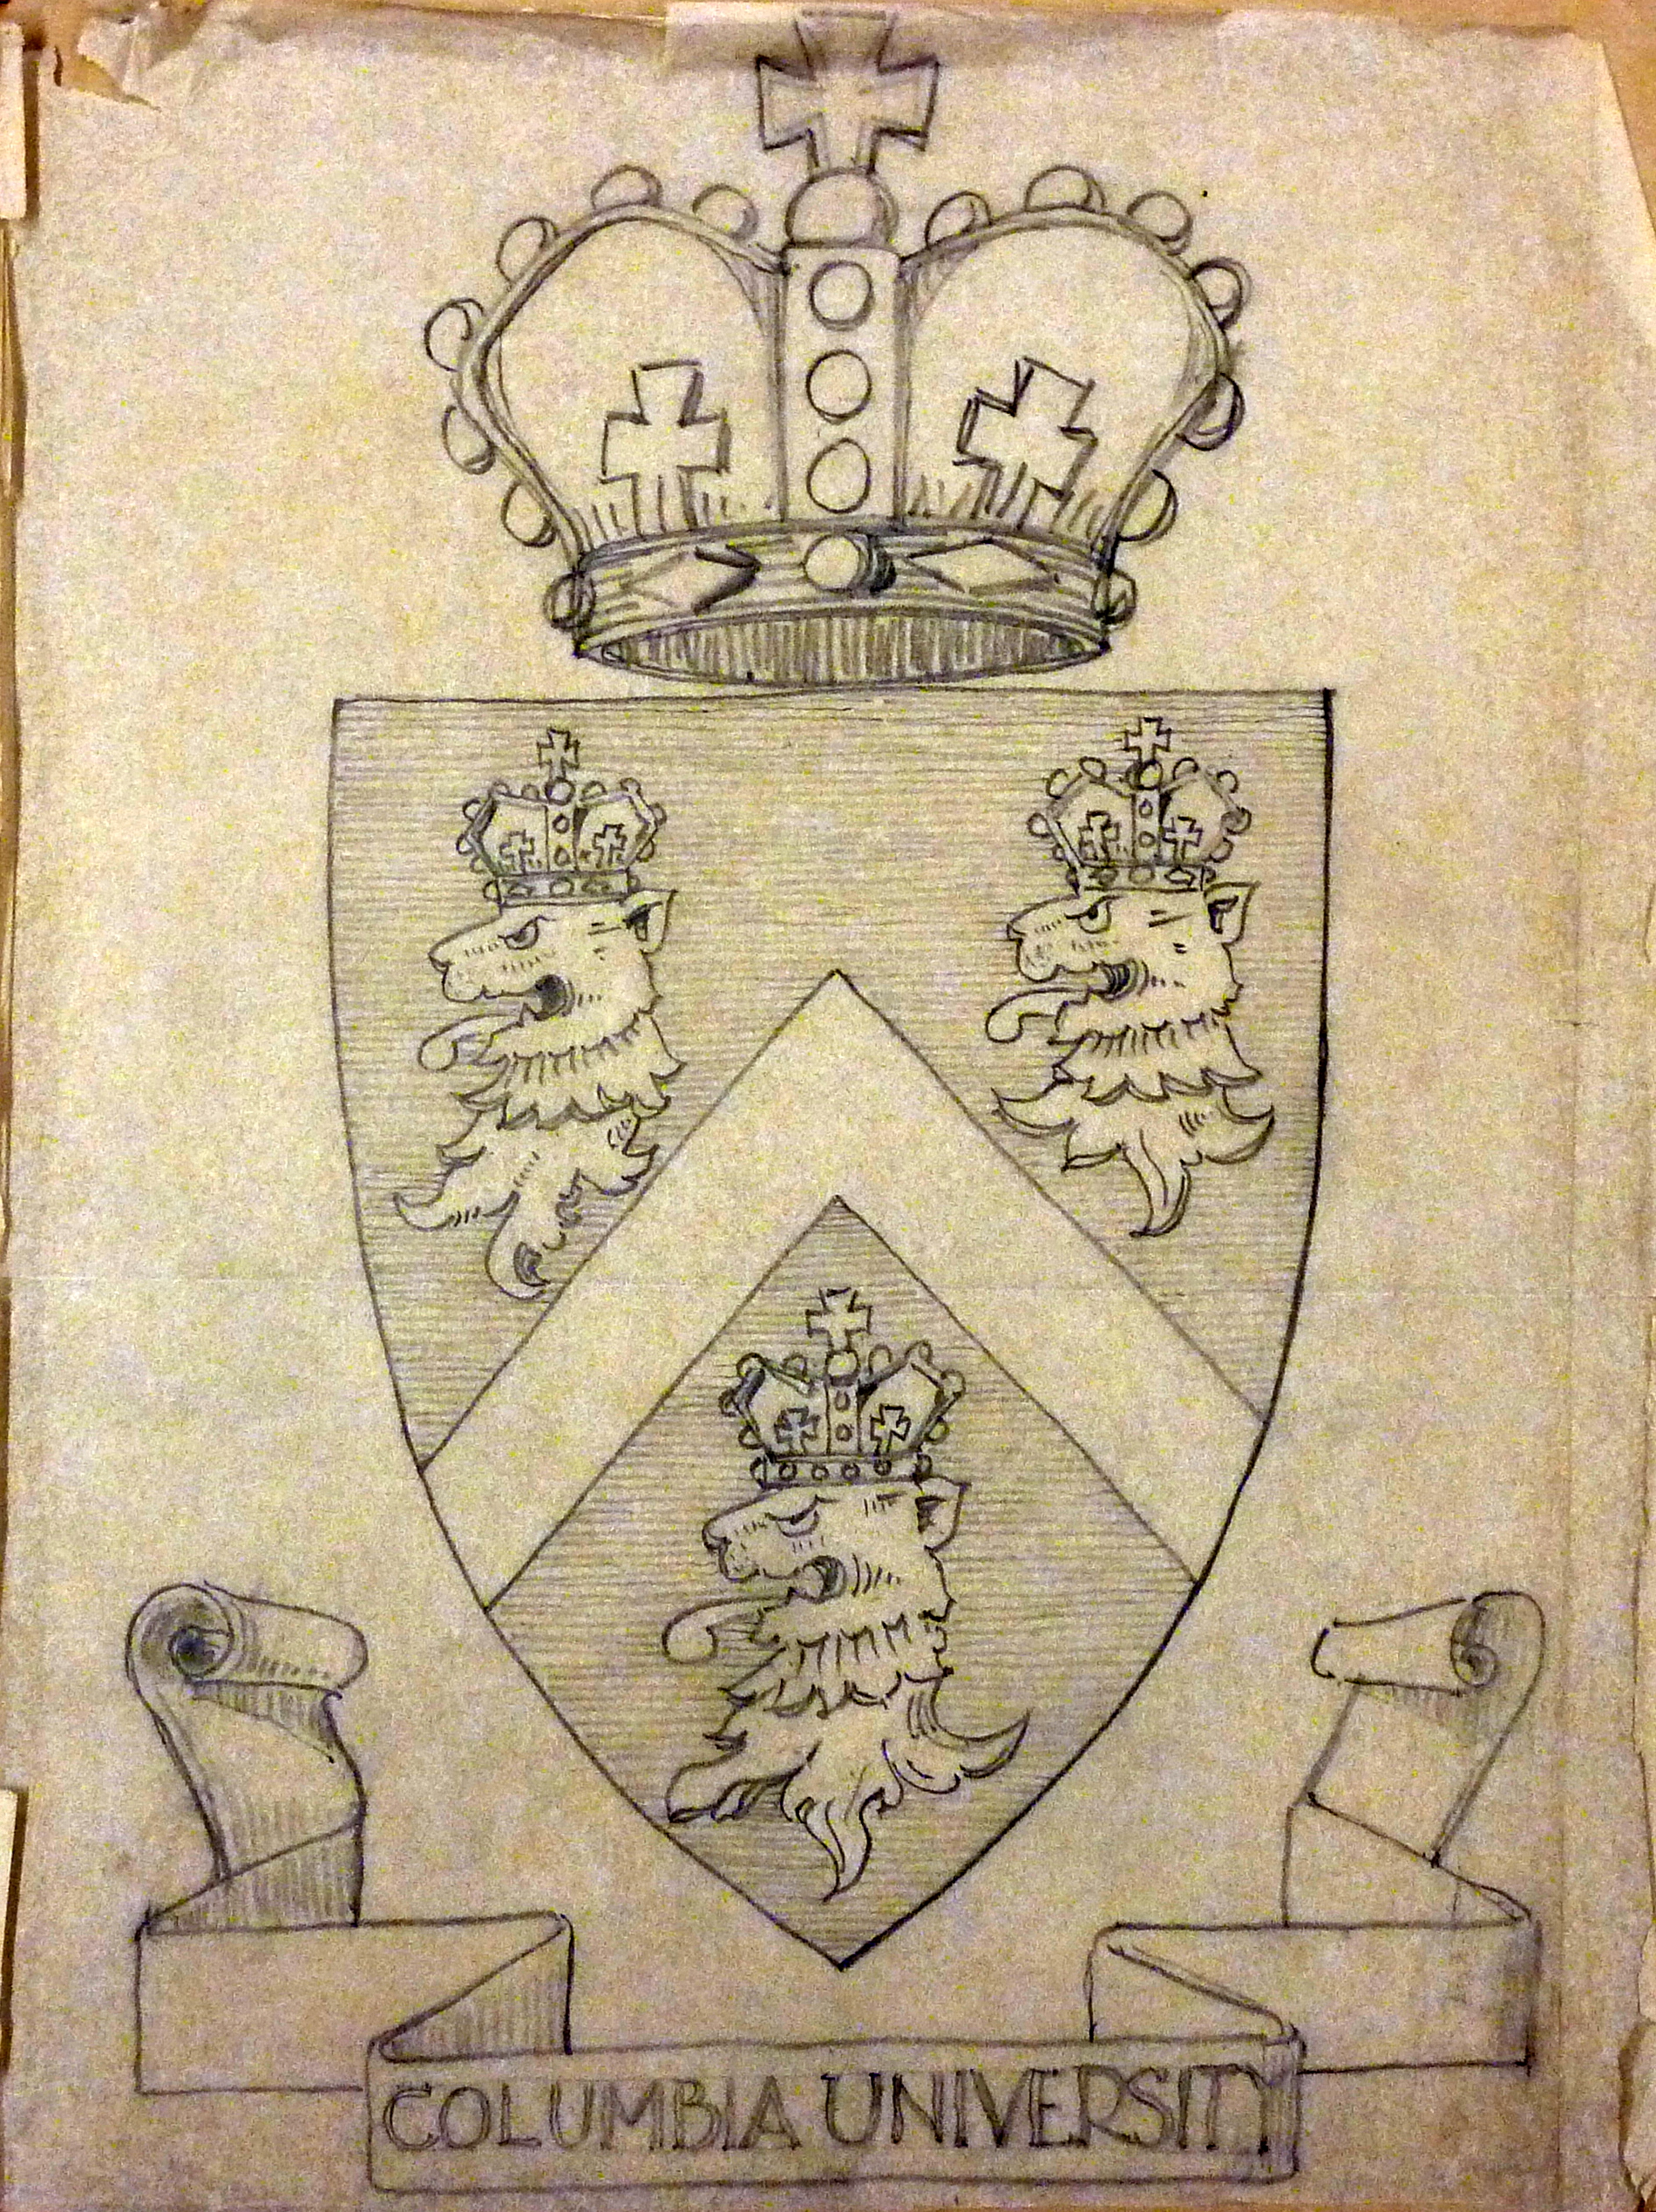 COLUMBIA UNIVERSITY